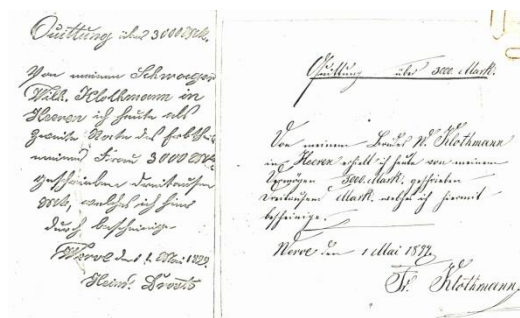 Quittung über 3000 Mk.
Von meinem Schwager
Wilh. Klothmann in
Heeren ich heute als
zweite Rate des Erbtheils
meiner Frau 3000 Mk
geschrieben dreitausend
Mk, welches ich hier
durch bescheinige.
Werve den 1. Mai
Heinr.
Quittung über 3000. Mark.
Von meinem Bruder W. Klothmann
in Heeren erhielt ich heute von meinem
Vermögen 3000. Mark. geschrieben
Dreitausend Mark. welches ich hiermit
bescheinige.
Werve den 1 Mai
Fr. Klothmann